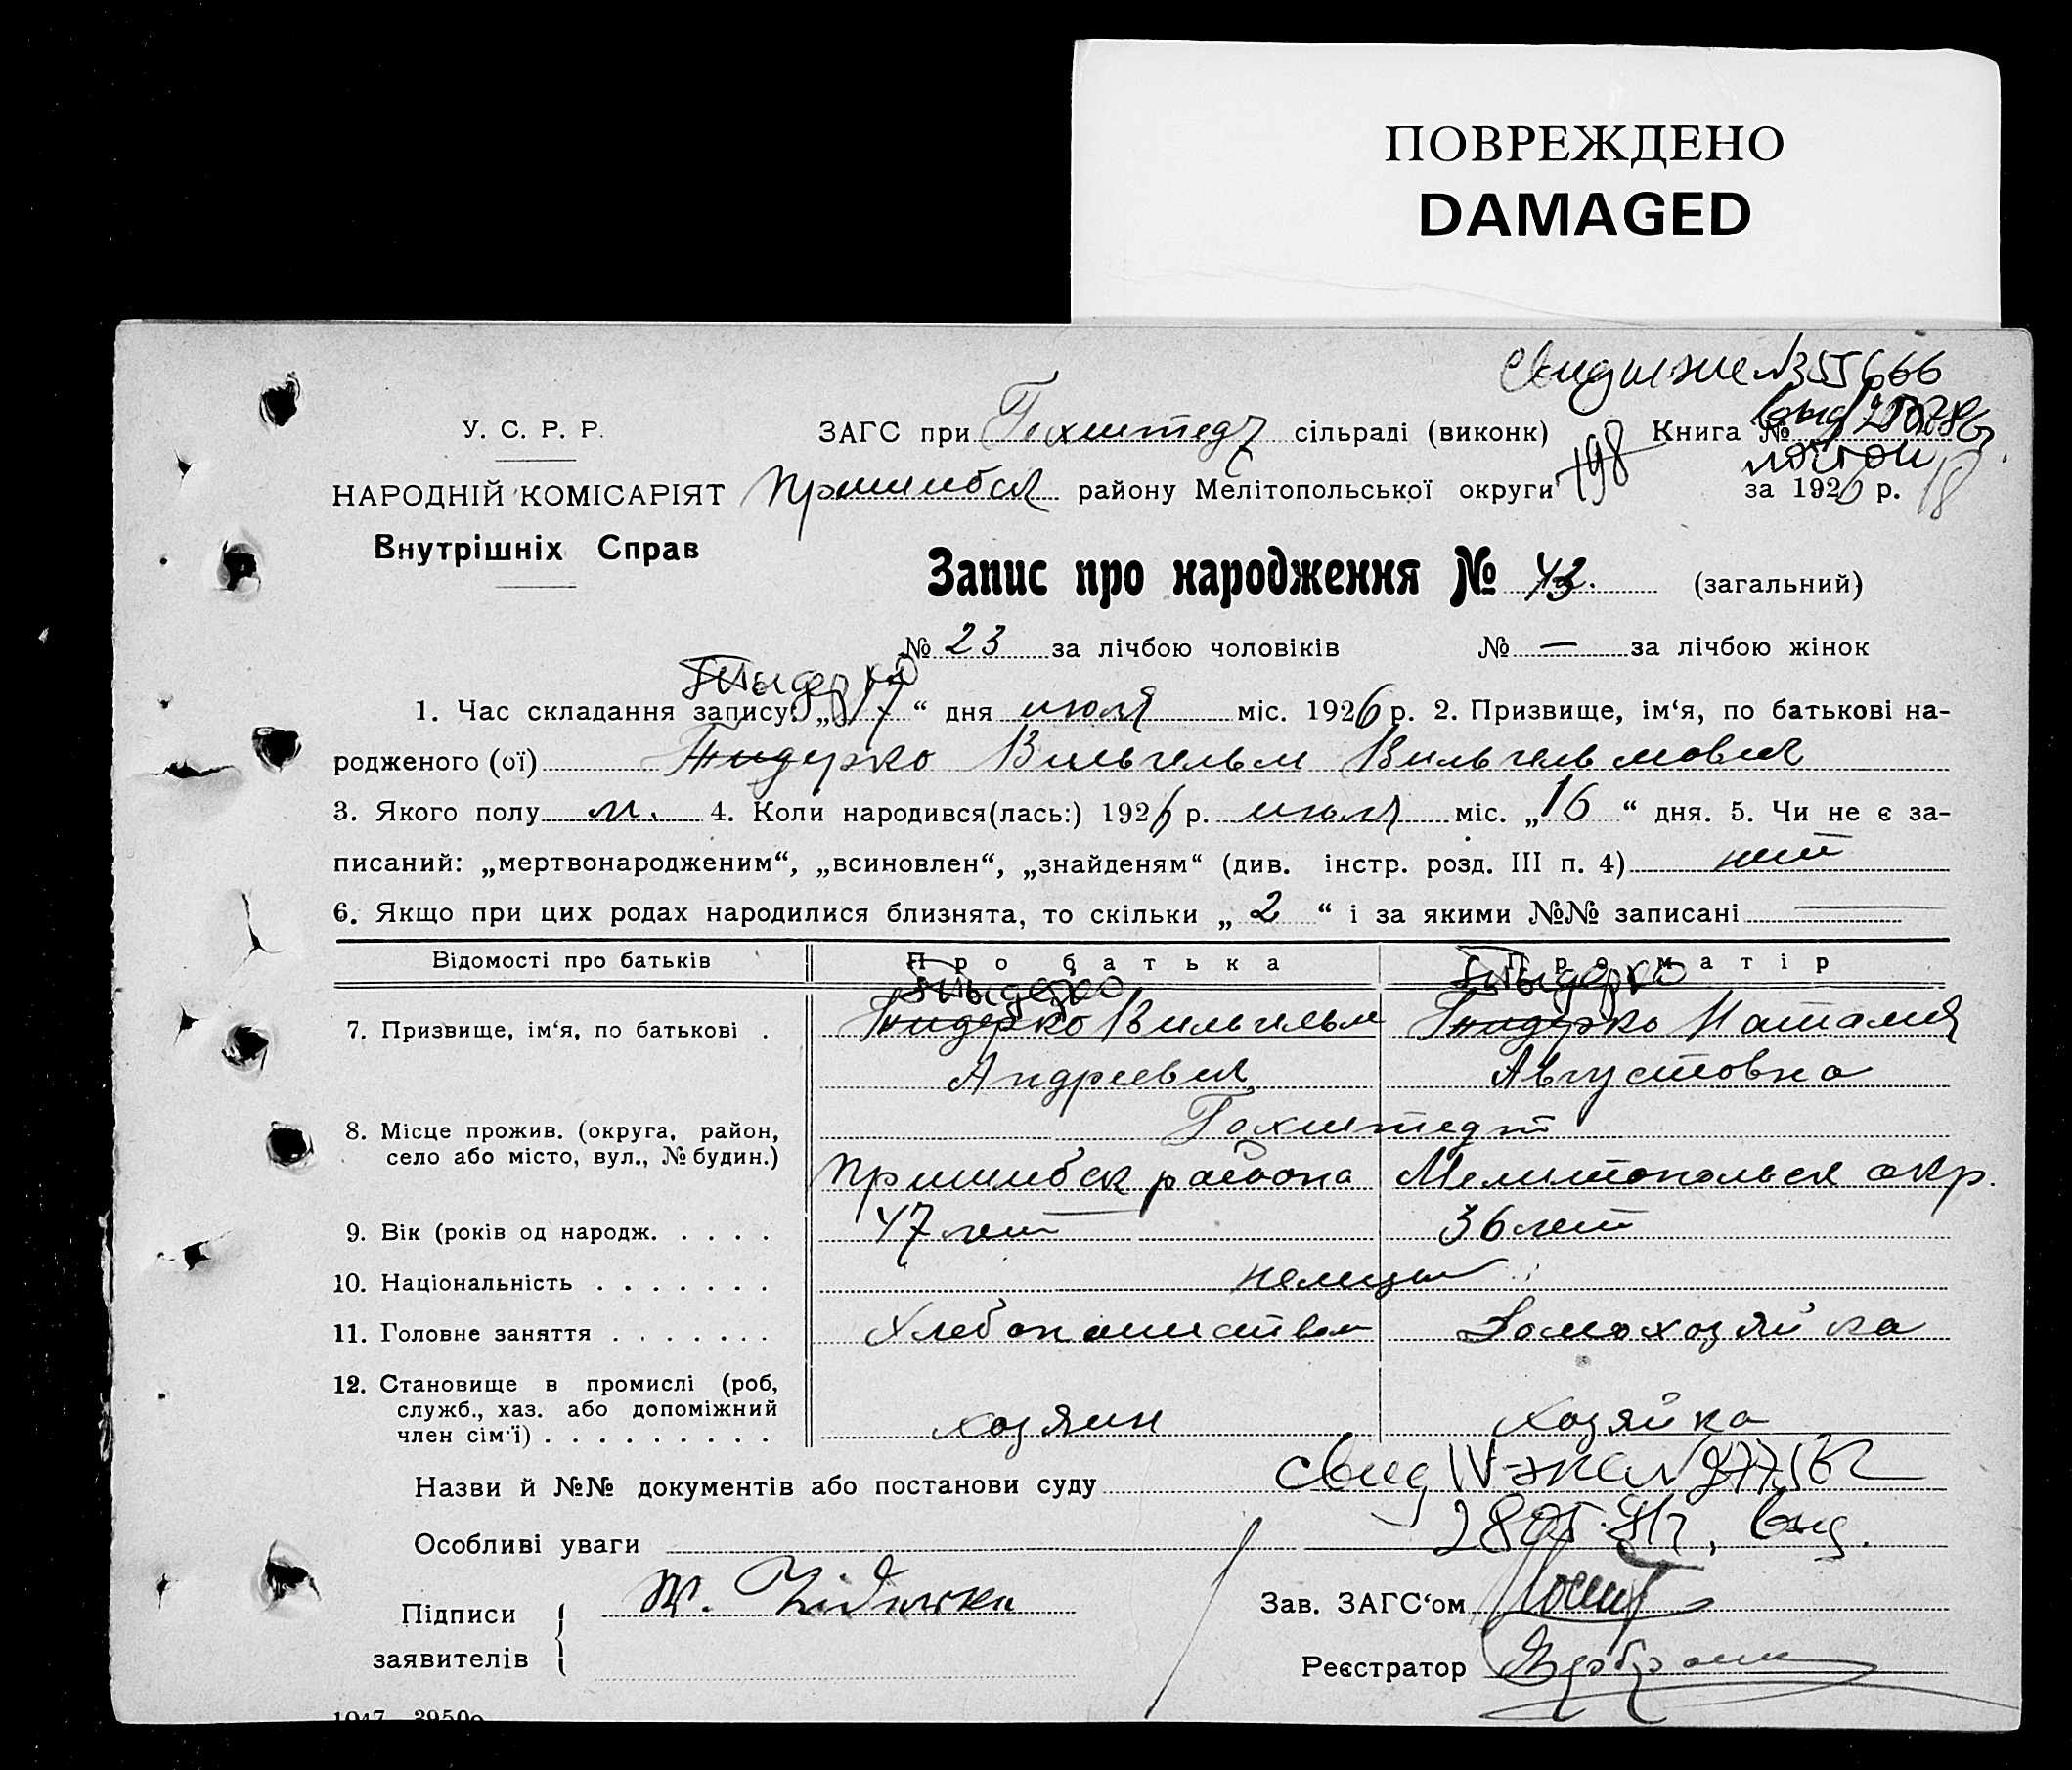 ПОВРЕЖДЕНО
DAMAGED
355666
У. С. Р. Р. ЗАГС при Гохштедт сільраді (виконк) Книга №
НАРОДНІЙ КОМІСАРІЯТ Пришибск району Мелітопольської округи 198 за 1926 р. 18
Внутрішніх Справ
Запис про народження № 43. (загальний)
№ 23 за лічбою чоловіків № — за лічбою жінок
1. Час складання запису: „17“ дня июля міс. 1926 р. 2. Призвище, ім‘я, по батькові на-
родженого (ої) Вильгельм Вильгельмович
3. Якого полу м. 4. Коли народився(лась:) 1926 р. июля міс. „16“ дня. 5. Чи не є за-
писаний: „мертвонародженим“, „всиновлен“, „знайденям“ (див. інстр. розд. III п. 4) нет
6. Якщо при цих родах народилися близнята, то скільки „2“ і за якими №№ записані —
Відомості про батьків Про батька Про матір
7. Призвище, ім‘я, по батькові . Вильгельм Наталия
Андреевич Августовна
8. Місце прожив. (округа, район, Гохштедт
село або місто, вул., № будин.) Пришибск района Мелитопольск окр.
9. Вік (років од народж. . . . . 47 лет 36 лет
10. Національність . . . . . . . немцы
11. Головне заняття . . . . . . . Хлебопашеством Домохозяйка
12. Становище в промислі (роб,
служб., хаз. або допоміжний
член сім‘ї) . . . . . . . . . хозяин хозяйка
Назви й №№ документів або постанови суду свид IV-жс №
Особливі уваги выд.
Підписи W.
заявителів
Зав. ЗАГС‘ом
Реєстратор
1047 3950